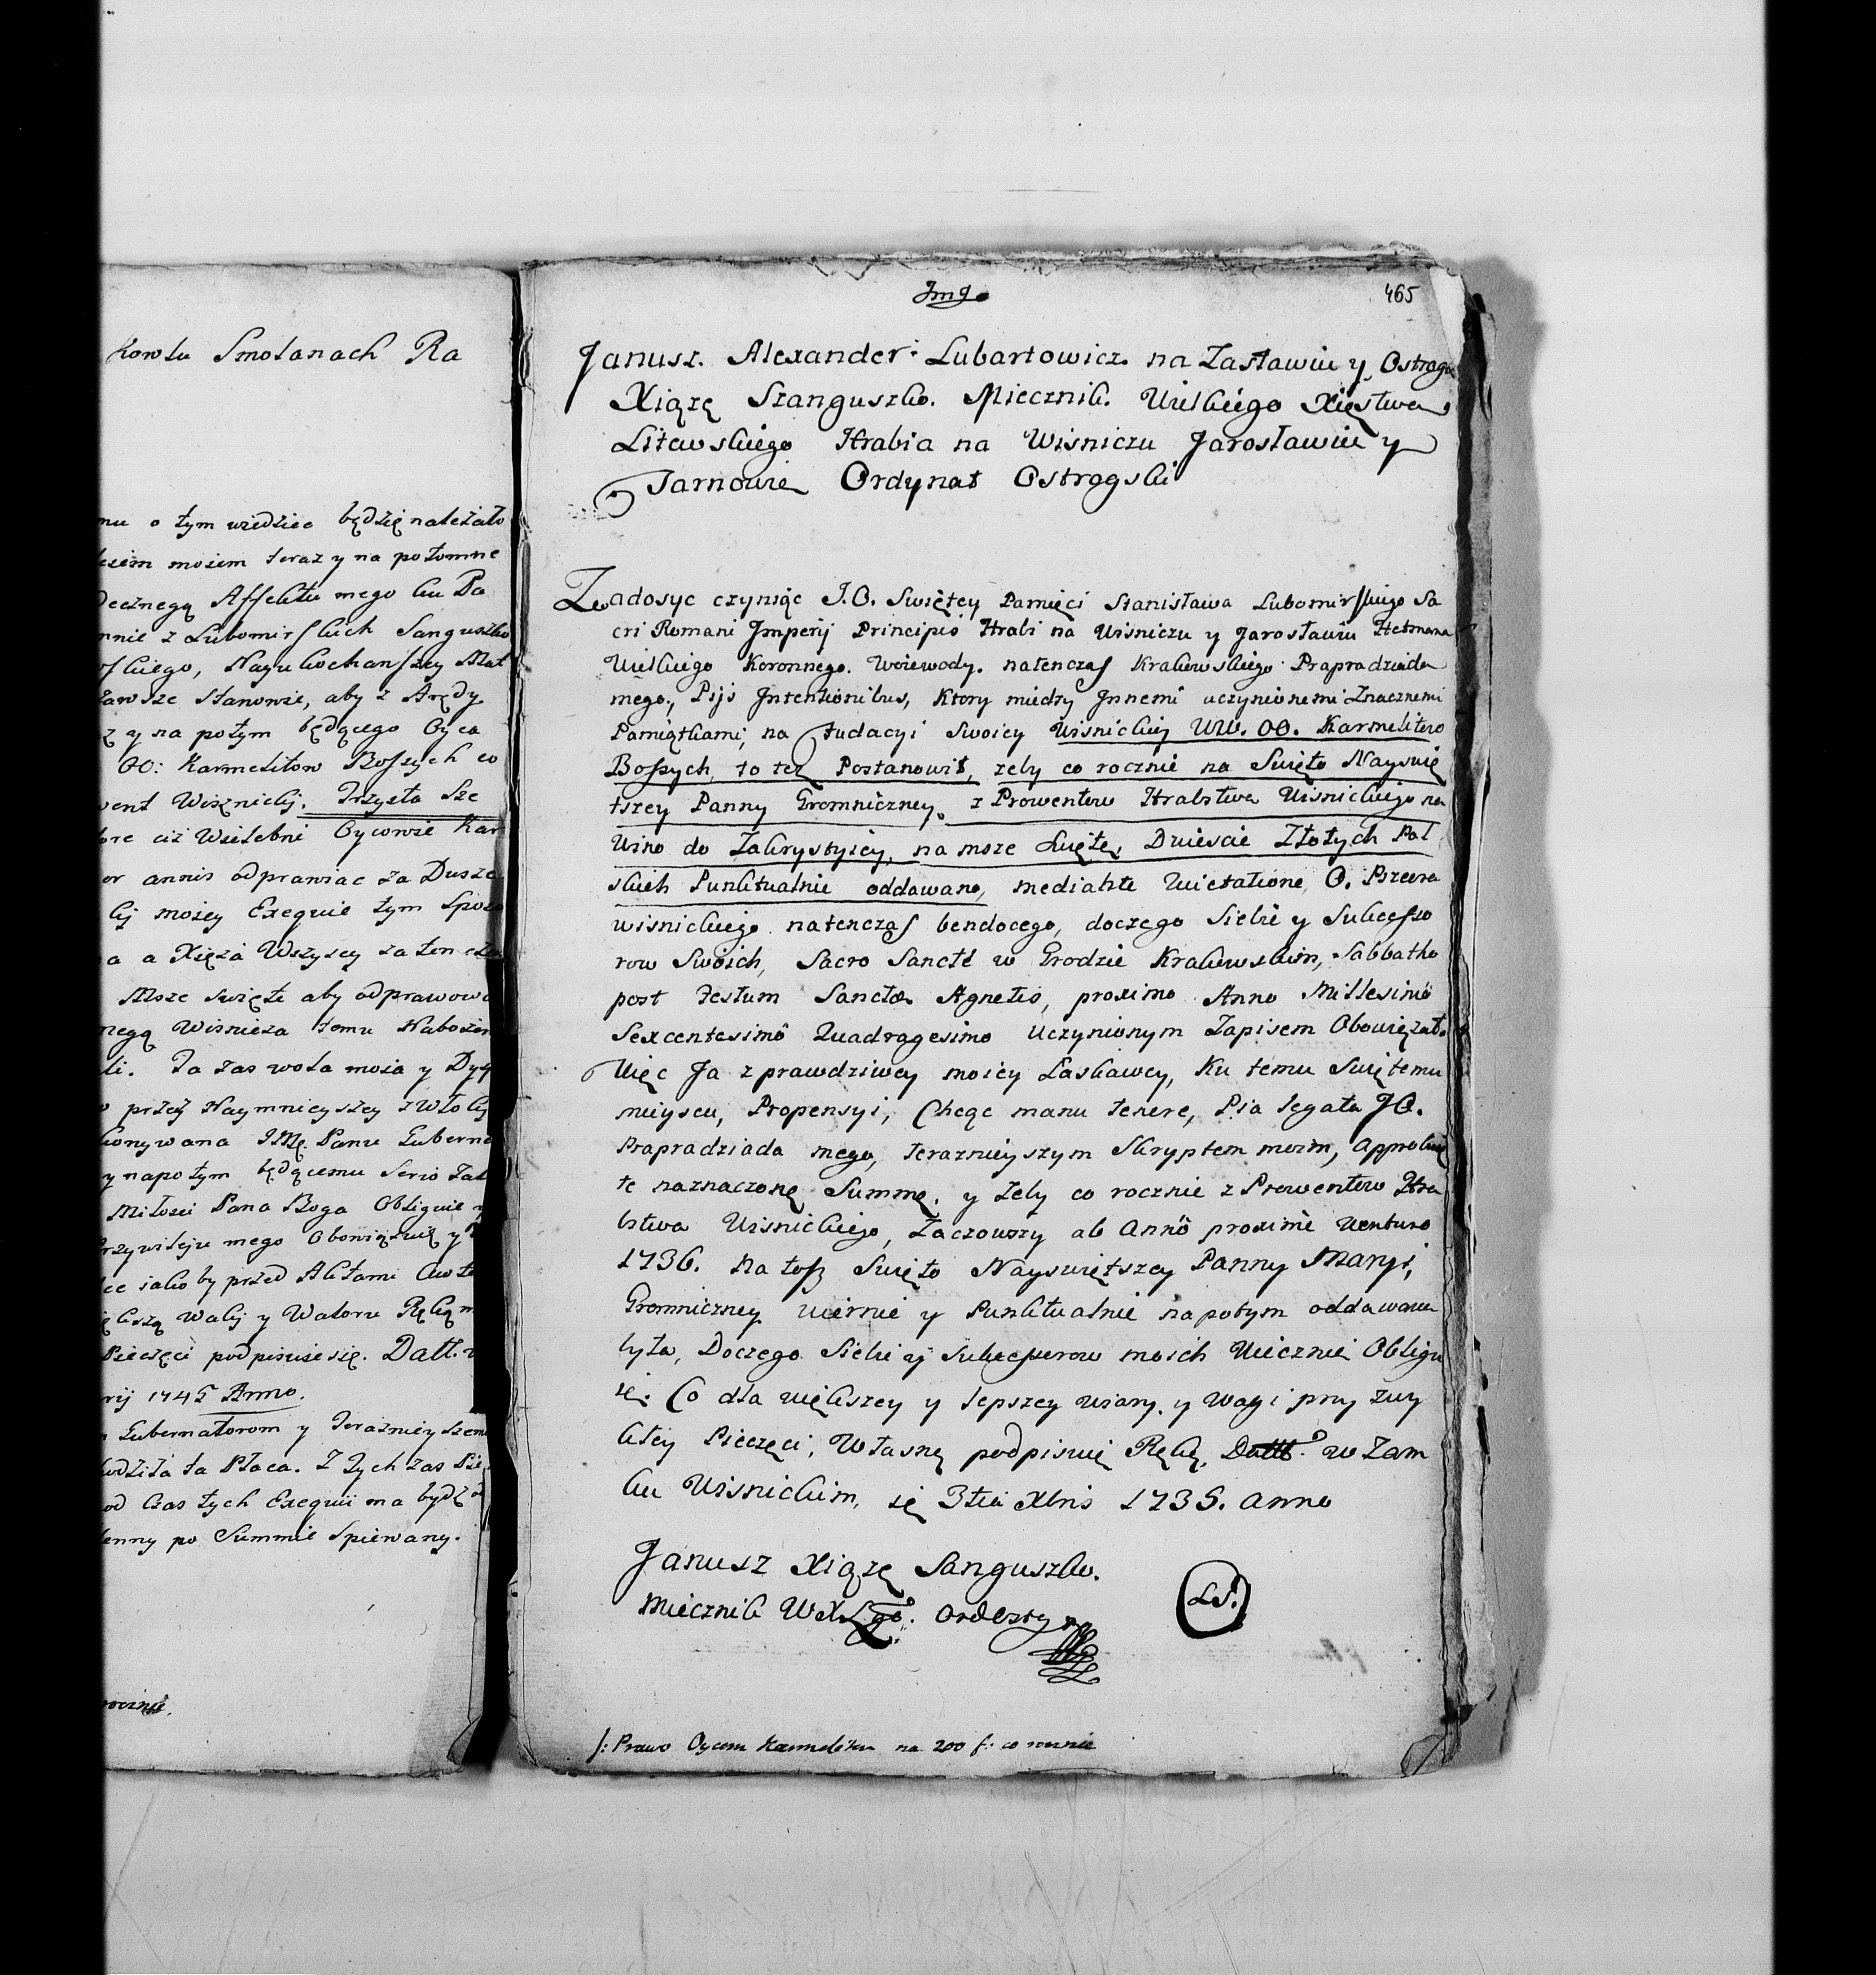 kowlu Smolanach Ra
mu o tym wiedziec będzię należało
moiem teraz y na potomne
Affektu mego ku Pa
z Lubomirskich Sanguszko
skiego, Nayukochanszey Mat
zawsze stanowie, aby z Arędy
y na potym będącego Oyca
OO: Karmelitow Bossych co
Wisznickij. Trzysta Sze
ciż Wielebni Oycowie Kar
annis odprawiac za Duszę
mojey Exequie tym Sposo
a Xięża Wszyscy za ten
Msze swięte aby odprawowa
Wisnicza temu Nabożen
li. Ta zas wola moia y Dys
przez Naymnieyszey zwłoki
konywana JMę. Panu Guberna
y napotym będącemu Serio Zal
Miłosci Pana Boga Obliguie
rzywileju mego Obowiązuię y
iako by przed Aktami
Wagi y Waloru Ręką m
Pieczęci podpisuie się. Datt.
1745 Anno.
Gubernatorom y Teraznieyszem
ta Płaca. Z Tych zas Pie
od czas tych Exequii ma bydź
po Summie Spiewany.
rocznie.
Img
465
Janusz. Alexander. Lubartowicz. na Zasławiu y Ostrogu
Xiąże Szanguszko. Miecznik. Wielkiego Xięstwa
Litewskiego Hrabia na Wisniczu Jarosławiu y
Tarnowie Ordynat Ostrogski
Zadosyc czyniąc J.O. Swiętey Pamięci Stanisława Lubomirskiego Sa
cri Romani Imperij Principis Hrabi na Wisniczu y Jarosławiu Hetmana
Wielkiego Koronnego. Woiewody. natenczas Krakowskiego Prapradziada
mego, Pijs Intentionibus, Ktory miedzy Innemi uczynionemi Znacznemi
Pamiątkami, na Fudacyi Swoiey Wisnickiey WW. OO. Karmelitow
Bossych, to też Postanowił, zeby co rocznie na Swięto Nayswię
tszey Panny Gromniczney, z Prowentow Hrabstwa Wisnickiego na
Wino do Zakrystyiey, na msze Swięte, Dwiescie Złotych Pol
skich Punktualnie oddawano, mediante Quietatione O. Przeora
wisnickiego natenczas bendocego, doczego Siebie y Sukcesso
row Swoich, Sacro Sancte w Grodzie Krakowskim, Sabbatho
post Festum Sanctæ Agnetis, proximo Anno Millesimo
Sexcentesimo Quadragesimo Uczynionym Zapisem Obowięzał.
Więc Ja z prawdziwey moiey Laskawey, Ku temu Swiętemu
mieyscu, Propensyi, Chcąc manu tenere, Pia legata JO.
Prapradziada mego, terazniejszym Skryptem moim, approbuię
te naznaczonę Summę, y żeby co rocznie z Prowentow Hra
bstwa Wisnickiego, Zacząwszy ab Anno proxime venturo
1736. Na toż Swięto Nayswiętszey Panny Maryi,
Gromniczney wiernie y Punktualnie napotym oddawana
była, Doczego Siebie y Sukcessorow moich Wiecznie Obligu
ię. Co dla większey y lepszey wiary, y wagi przy zwy
kłey Pieczęci, Własnę podpisuię Rękę, Datt. w Zam
ku Wisnickim, się 3tia Xbris 1735. Anno
Janusz Xiąże Sanguszko.
Miecznik WXLgo.
LS.
/: Prawo Oycom Karmelitom na 200 f: co rocznie